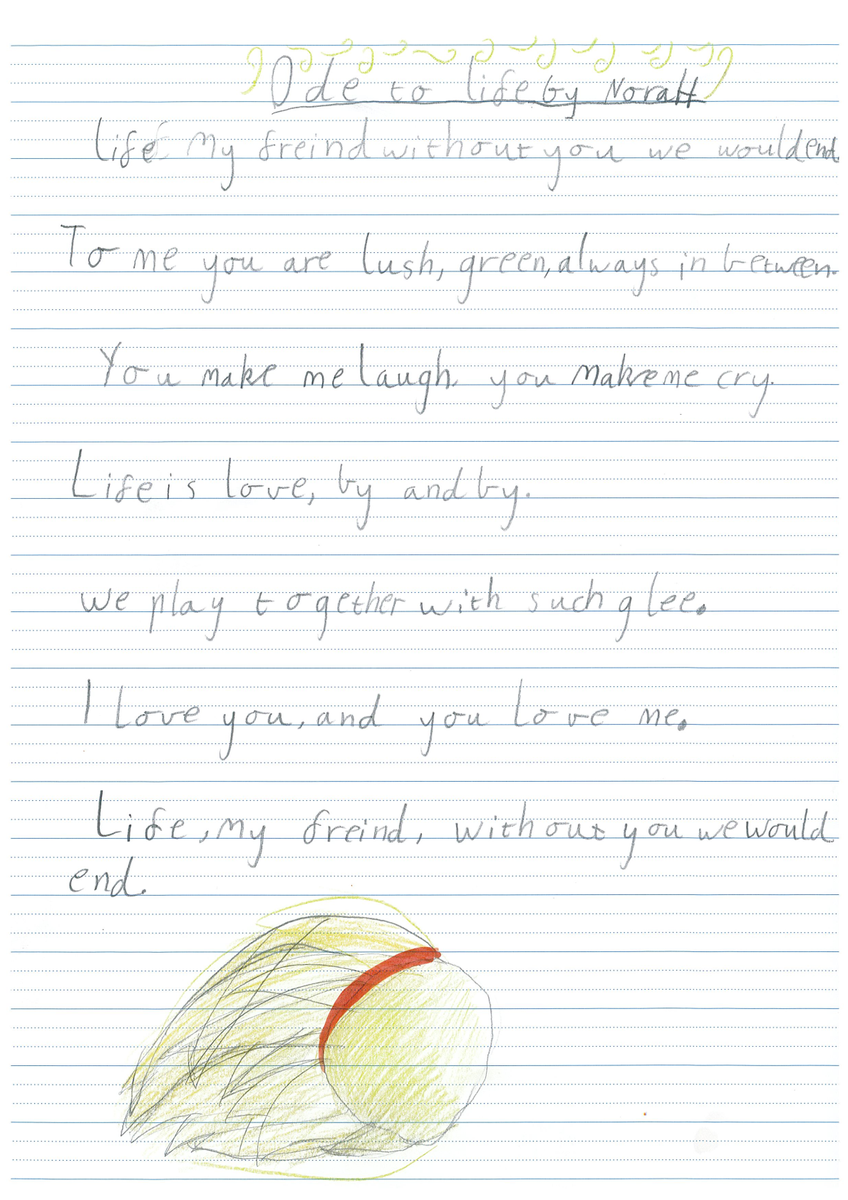 Ode to life by NoraH
life My freind without you we would end.
To me you are lush, green, always in between.
You make me laugh. you make me cry.
Life is love, by and by.
we play together with such glee.
I love you, and you love me.
Life, my freind, without you we would
end.